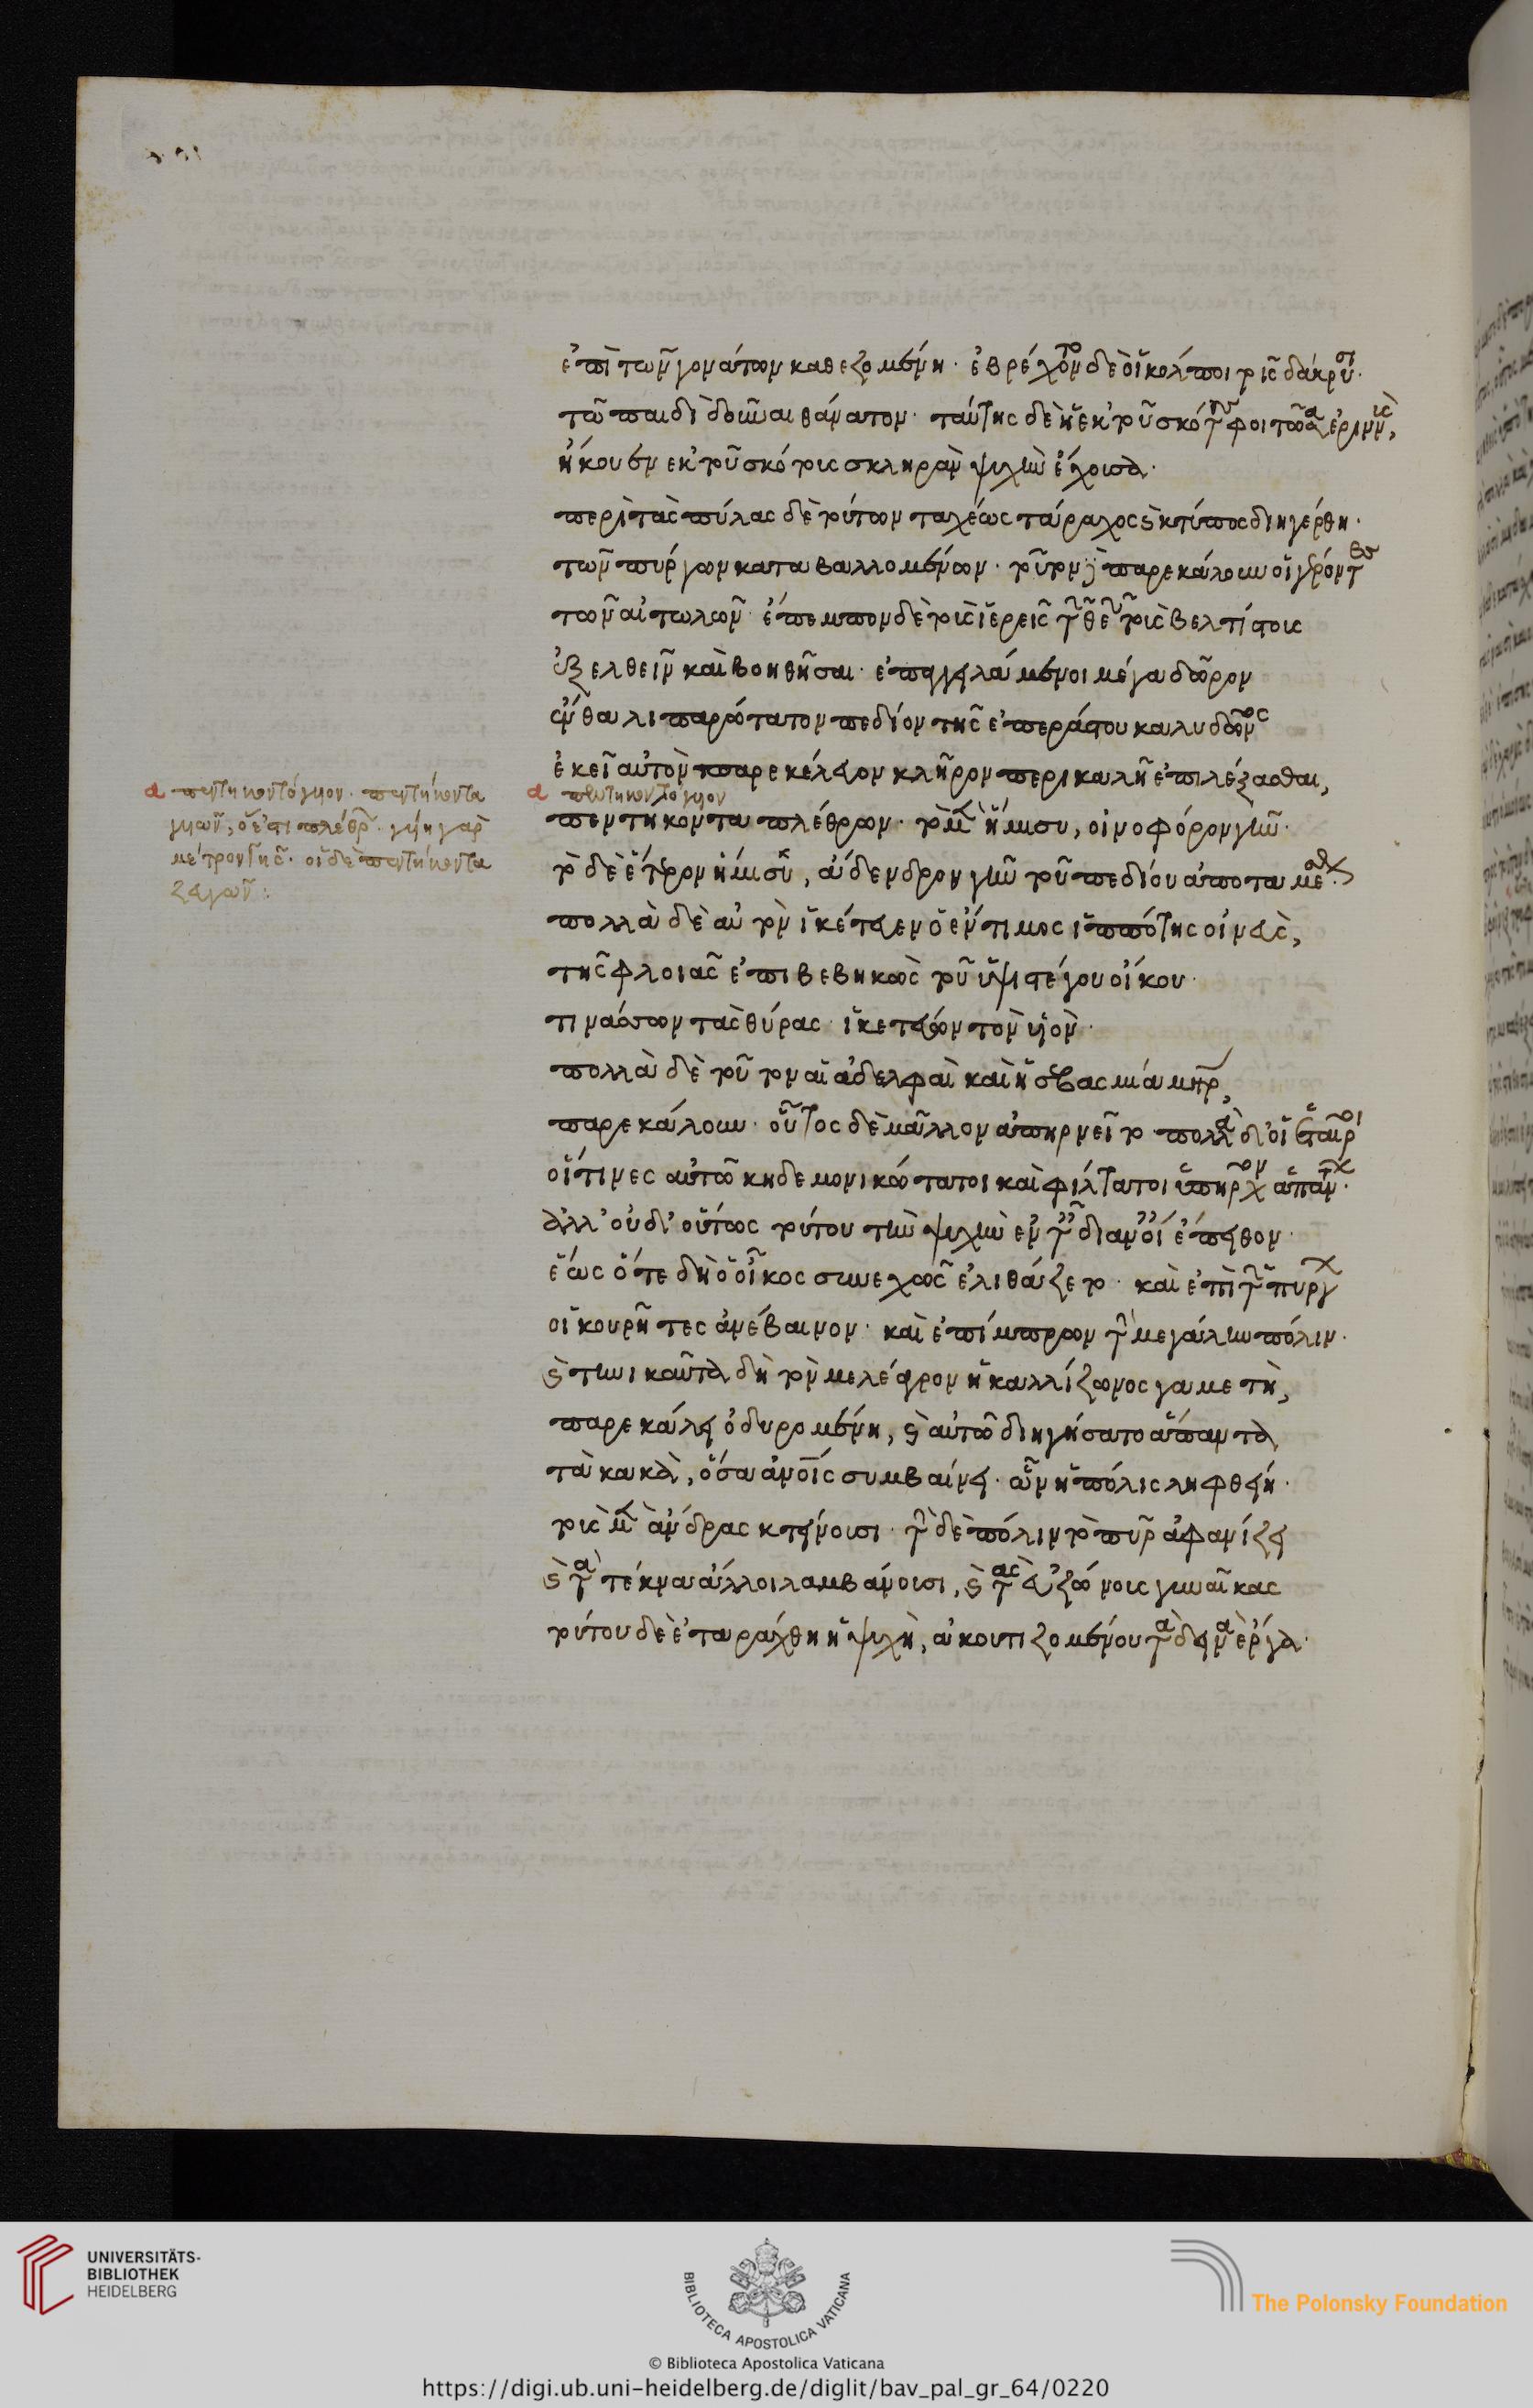 ἐπὶ τῶν γονάτων καθεζομένη· ἐβρέχοντο δὲ οἱ κόλποι τοῖς δάκρυσι·
τῶ παιδὶ δοῦναι θάνατον· ταύτης δὲ ἡ ἐκ τοῦ σκότους φοιτῶσα ἐριννὺς,
ἤκουεν ἐκ τοῦ σκότους σκληρὰν ψυχὴν ἔχουσα·
περὶ τὰς πύλας δὲ τούτων ταχέως τάραχος καὶ κτύπος διηγέρθη·
τῶν πύργων καταβαλλομένων· τοῦτον παρεκάλουν οἱ γέροντες
τῶν αἰτωλῶν· ἔπεμπον δὲ τοὺς ἱερεῖς τῶν θεῶν τοὺς βελτίστους
ἐξελθεῖν καὶ βοηθῆσαι· ἐπαγγειλάμενοι μέγα δῶρον
ἔνθα λιπαρώτατον πεδίον τῆς ἐπεράστου καλυδῶνος
ἐκεῖ αὐτὸν παρεκέλευον κλῆρον περικαλῆ ἐπιλέξασθαι,
α πεντηκοντόγυον
πεντήκοντα πλέθρων· τὸ μὲν ἥμισυ, οἰνοφόρον γῆν·
τὸ δὲ ἕτερον ἥμισυ, ἄδενδρον γῆν τοῦ πεδίου ἀποταμέσθαι
πολλὰ δὲ αὐτὸν ἱκέτευεν ὁ ἔντιμος ἱππότης οἰνεὺς,
τῆς φλοιᾶς ἐπιβεβηκὼς τοῦ ὑψιστέγου οἴκου·
τινάσσων τὰς θύρας· ἱκετεύων τὸν υἱόν·
πολλὰ δὲ τοῦτον αἱ ἀδελφαὶ καὶ ἡ σεβασμία μήτηρ,
παρεκάλουν· οὗτος δὲ μᾶλλον ἀπηρνεῖτο πολλὰ δ' οἱ ἑταῖροι
οἵτινες αὐτῶ κηδεμονικώτατοι καὶ φίλτατοι ὑπῆρχον ἁπάντων·
ἀλλ' οὐδ' οὕτως τούτου τὴν ψυχὴν ἐν τῆ διανοία ἔπειθον·
ἕως ὅτε δὴ ὁ οἶκος συνεχῶς ἐλιθάζετο· καὶ ἐπὶ τῶν πύργων
οἱ κουρῆτες ἀνέβαινον· καὶ ἐπίμπρων τὴν μεγάλην πόλιν·
καὶ τηνικαῦτα δὴ τὸν μελέαγρον ἡ καλλίζωνος γαμετὴ,
παρεκάλει ὀδυρομένη, καὶ αὐτῶ διηγήσατο ἅπαντα
τὰ κακὰ, ὅσα ἀνοις συμβαίνει· ὧν ἡ πόλις ληφθείη·
τοὺς μὲν ἄνδρας κτείνουσι· τὴν δὲ πόλιν τὸ πῦρ ἀφανίζει
καὶ τὰ τέκνα ἄλλοι λαμβάνουσι, καὶ τὰς εὐζώνους γυναῖκας
τούτου δὲ ἐταράχθη ἡ ψυχὴ, ἀκουτιζομένου τὰ δεινὰ ἔργα·
α πεντηκοντόγυον· πεντήκοντα
γυῶν, ὅ ἐστι πλέθρων· γύη γὰρ
μέτρον γῆς· οἱ δὲ πεντήκοντα
ζευγῶν:
UNIVERSITÄTS-
BIBLIOTHEK
HEIDELBERG
BIBLIOTECA APOSTOLICA VATICANA
The Polonsky Foundation
© Biblioteca Apostolica Vaticana
https://digi.ub.uni-heidelberg.de/diglit/bav_pal_gr_64/0220